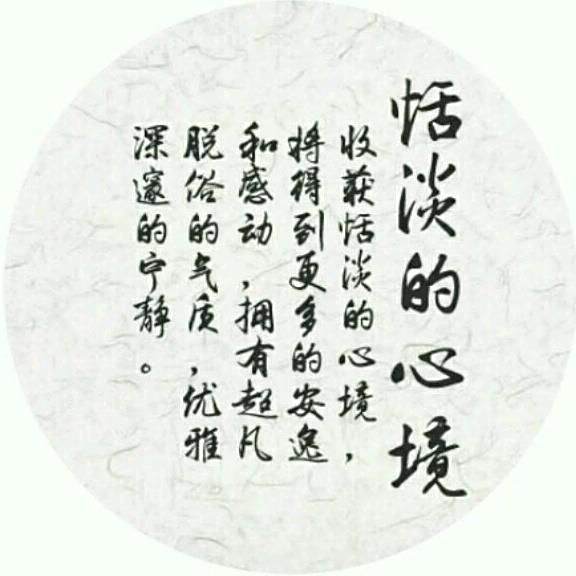 恬淡的心境
收获恬淡的心境，
将得到更多的安逸
和感动，拥有超凡
脱俗的气质，优雅
深邃的宁静。